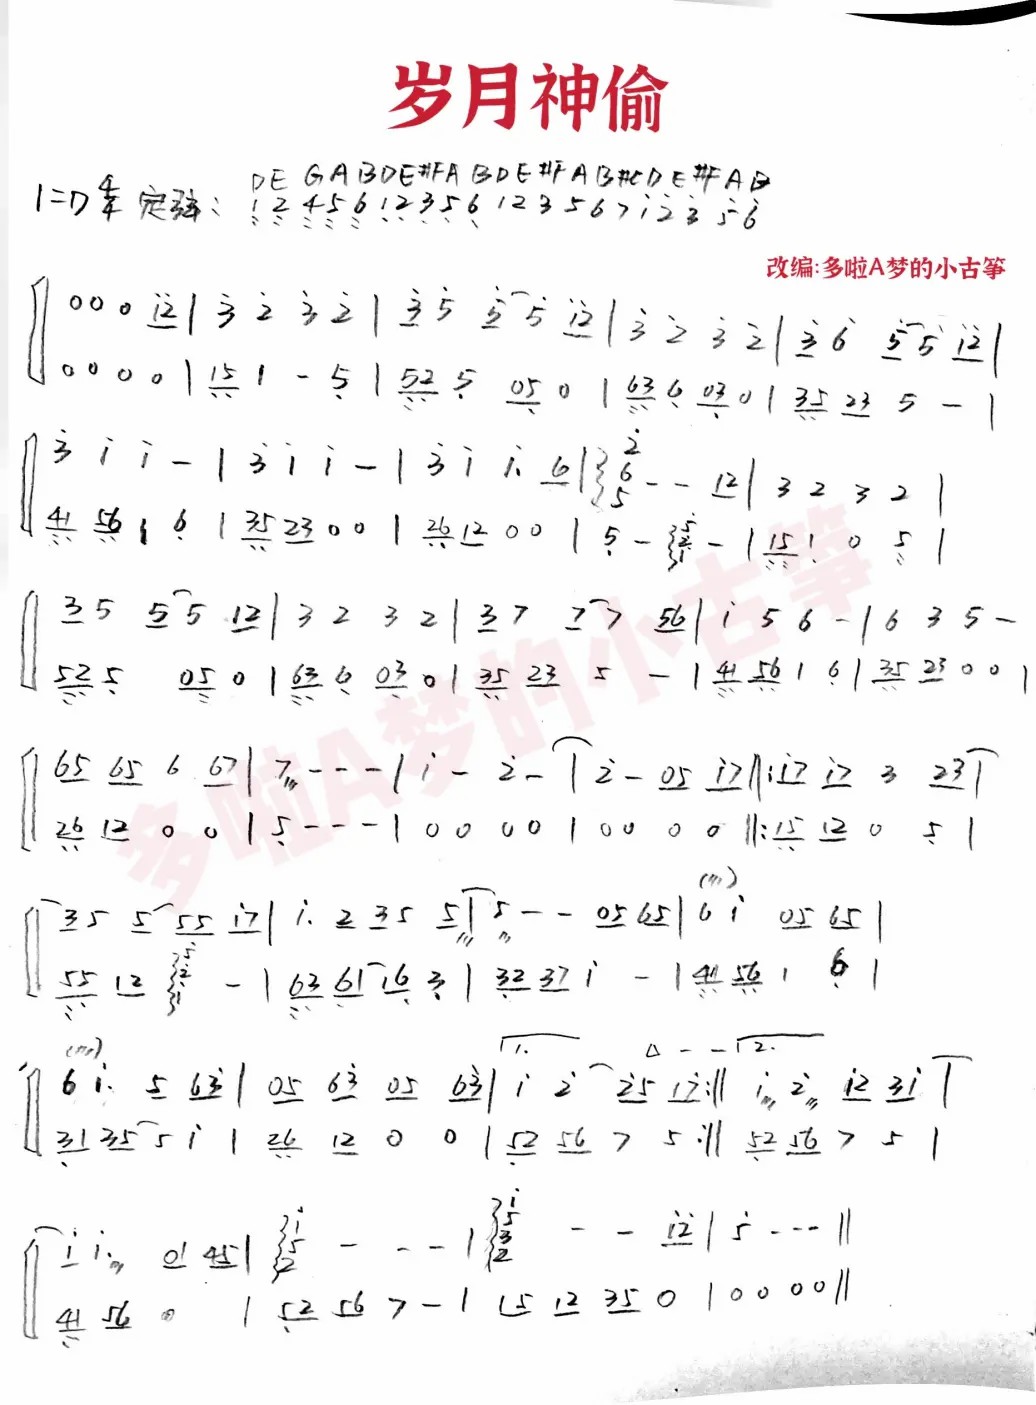 岁月神偷
DE GABDE#FA BDE#FAB#CDE#FAB
1=D 4/4 定弦: 1 2 4 5 6 1 2 3 5 6 1 2 3 5 6 7 1 2 3 5 6
改编:多啦A梦的小古筝
0 0 0 12 | 3 2 3 2 | 3 5 5 5 12 | 3 2 3 2 | 3 6 5 5 12 |
0 0 0 0 | 15 1 - 5 | 52 5 05 0 | 63 6 03 0 | 35 23 5 - |
3 1 1 - | 3 1 1 - | 3 1 1. 6 | 2 6 5 - - 12 | 3 2 3 2 |
41 56 1 6 | 35 23 0 0 | 26 12 0 0 | 5 - 5 2 1 - | 15 1 0 5 |
3 5 5 5 12 | 3 2 3 2 | 3 7 7 7 56 | 1 5 6 - | 6 3 5 -
52 5 05 0 | 63 6 03 0 | 35 23 5 - | 41 56 1 6 | 35 23 0 0 |
65 65 6 67 | 7 - - - | 1 - 2 - | 2 - 05 17 ‖: 17 17 3 23 |
26 12 0 0 | 5 - - - | 0 0 0 0 | 0 0 0 0 ‖: 15 12 0 5 |
35 5 55 17 | 1. 2 35 5 | 5 - - 05 65 | 6 1 05 65 |
55 12 5 2 1 - | 63 61 16 3 | 32 37 1 - | 41 56 1 6 |
6 1. 5 63 | 05 63 05 63 | 1. 1 2 25 17 :‖ 2. 1 2 12 31 |
31 35 5 1 | 26 12 0 0 | 52 56 7 5 :‖ 52 56 7 5 |
1 1. 01 45 | 1 5 2 - - - | 1 5 3 2 - - 12 | 5 - - - ‖
41 56 0 | 52 56 7 - | 15 12 35 0 | 0 0 0 0 ‖
多啦A梦的小古筝